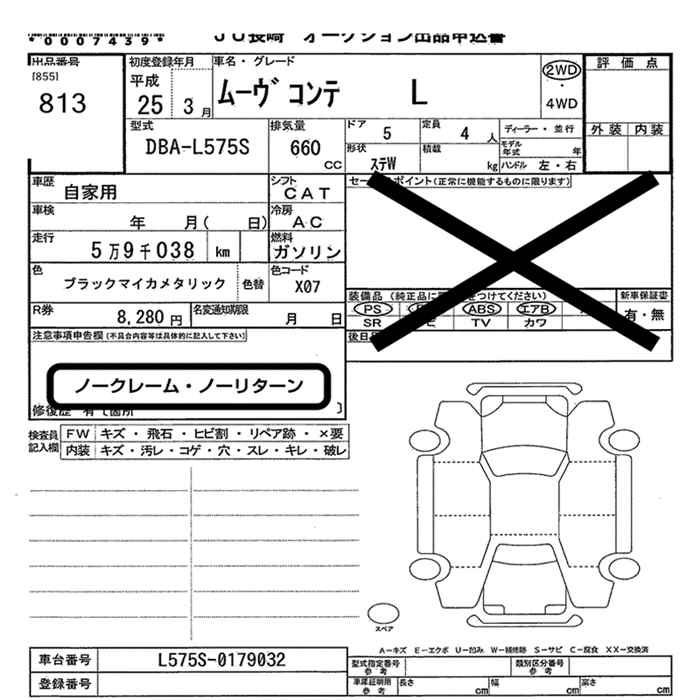 *0007439*
JU長崎 オークション出品申込書
出品番号
[855]
813
初度登録年月
平成
25 3月
車名・グレード
ムーヴ コンテ L
2WD
・
4WD
評価点
外装 内装
型式
DBA-L575S
排気量
660
CC
ドア
5
定員
4 人
ディーラー・並行
形状
ステW
積載
kg
モデル年式 年
ハンドル 左・右
車歴
自家用
シフト
CAT
車検
年 月( 日)
冷房
AC
走行
5万9千038 km
燃料
ガソリン
色
ブラックマイカメタリック
色替
色コード
X07
R券
8,280円
名変通知期限
月 日
セー ポイント(正常に機能するものに限ります)
装備品 (純正品に をつけてください)
PS ABS エアB
SR TV カワ
新車保証書
有・無
後日
注意事項申告欄(不具合内容等は具体的に記入して下さい)
ノークレーム・ノーリターン
修復歴 有 て箇所
検査員記入欄
FW キズ・飛石・ヒビ割・リペア跡・×要
内装 キズ・汚レ・コゲ・穴・スレ・キレ・破レ
スペア
A－キズ E－エクボ U－凹み W－補修跡 S－サビ C－腐食 XX－交換済
車台番号
L575S-0179032
登録番号
型式指定番号
参考
類別区分番号
参考
車庫証明用
参考
長さ cm
幅 cm
高さ cm